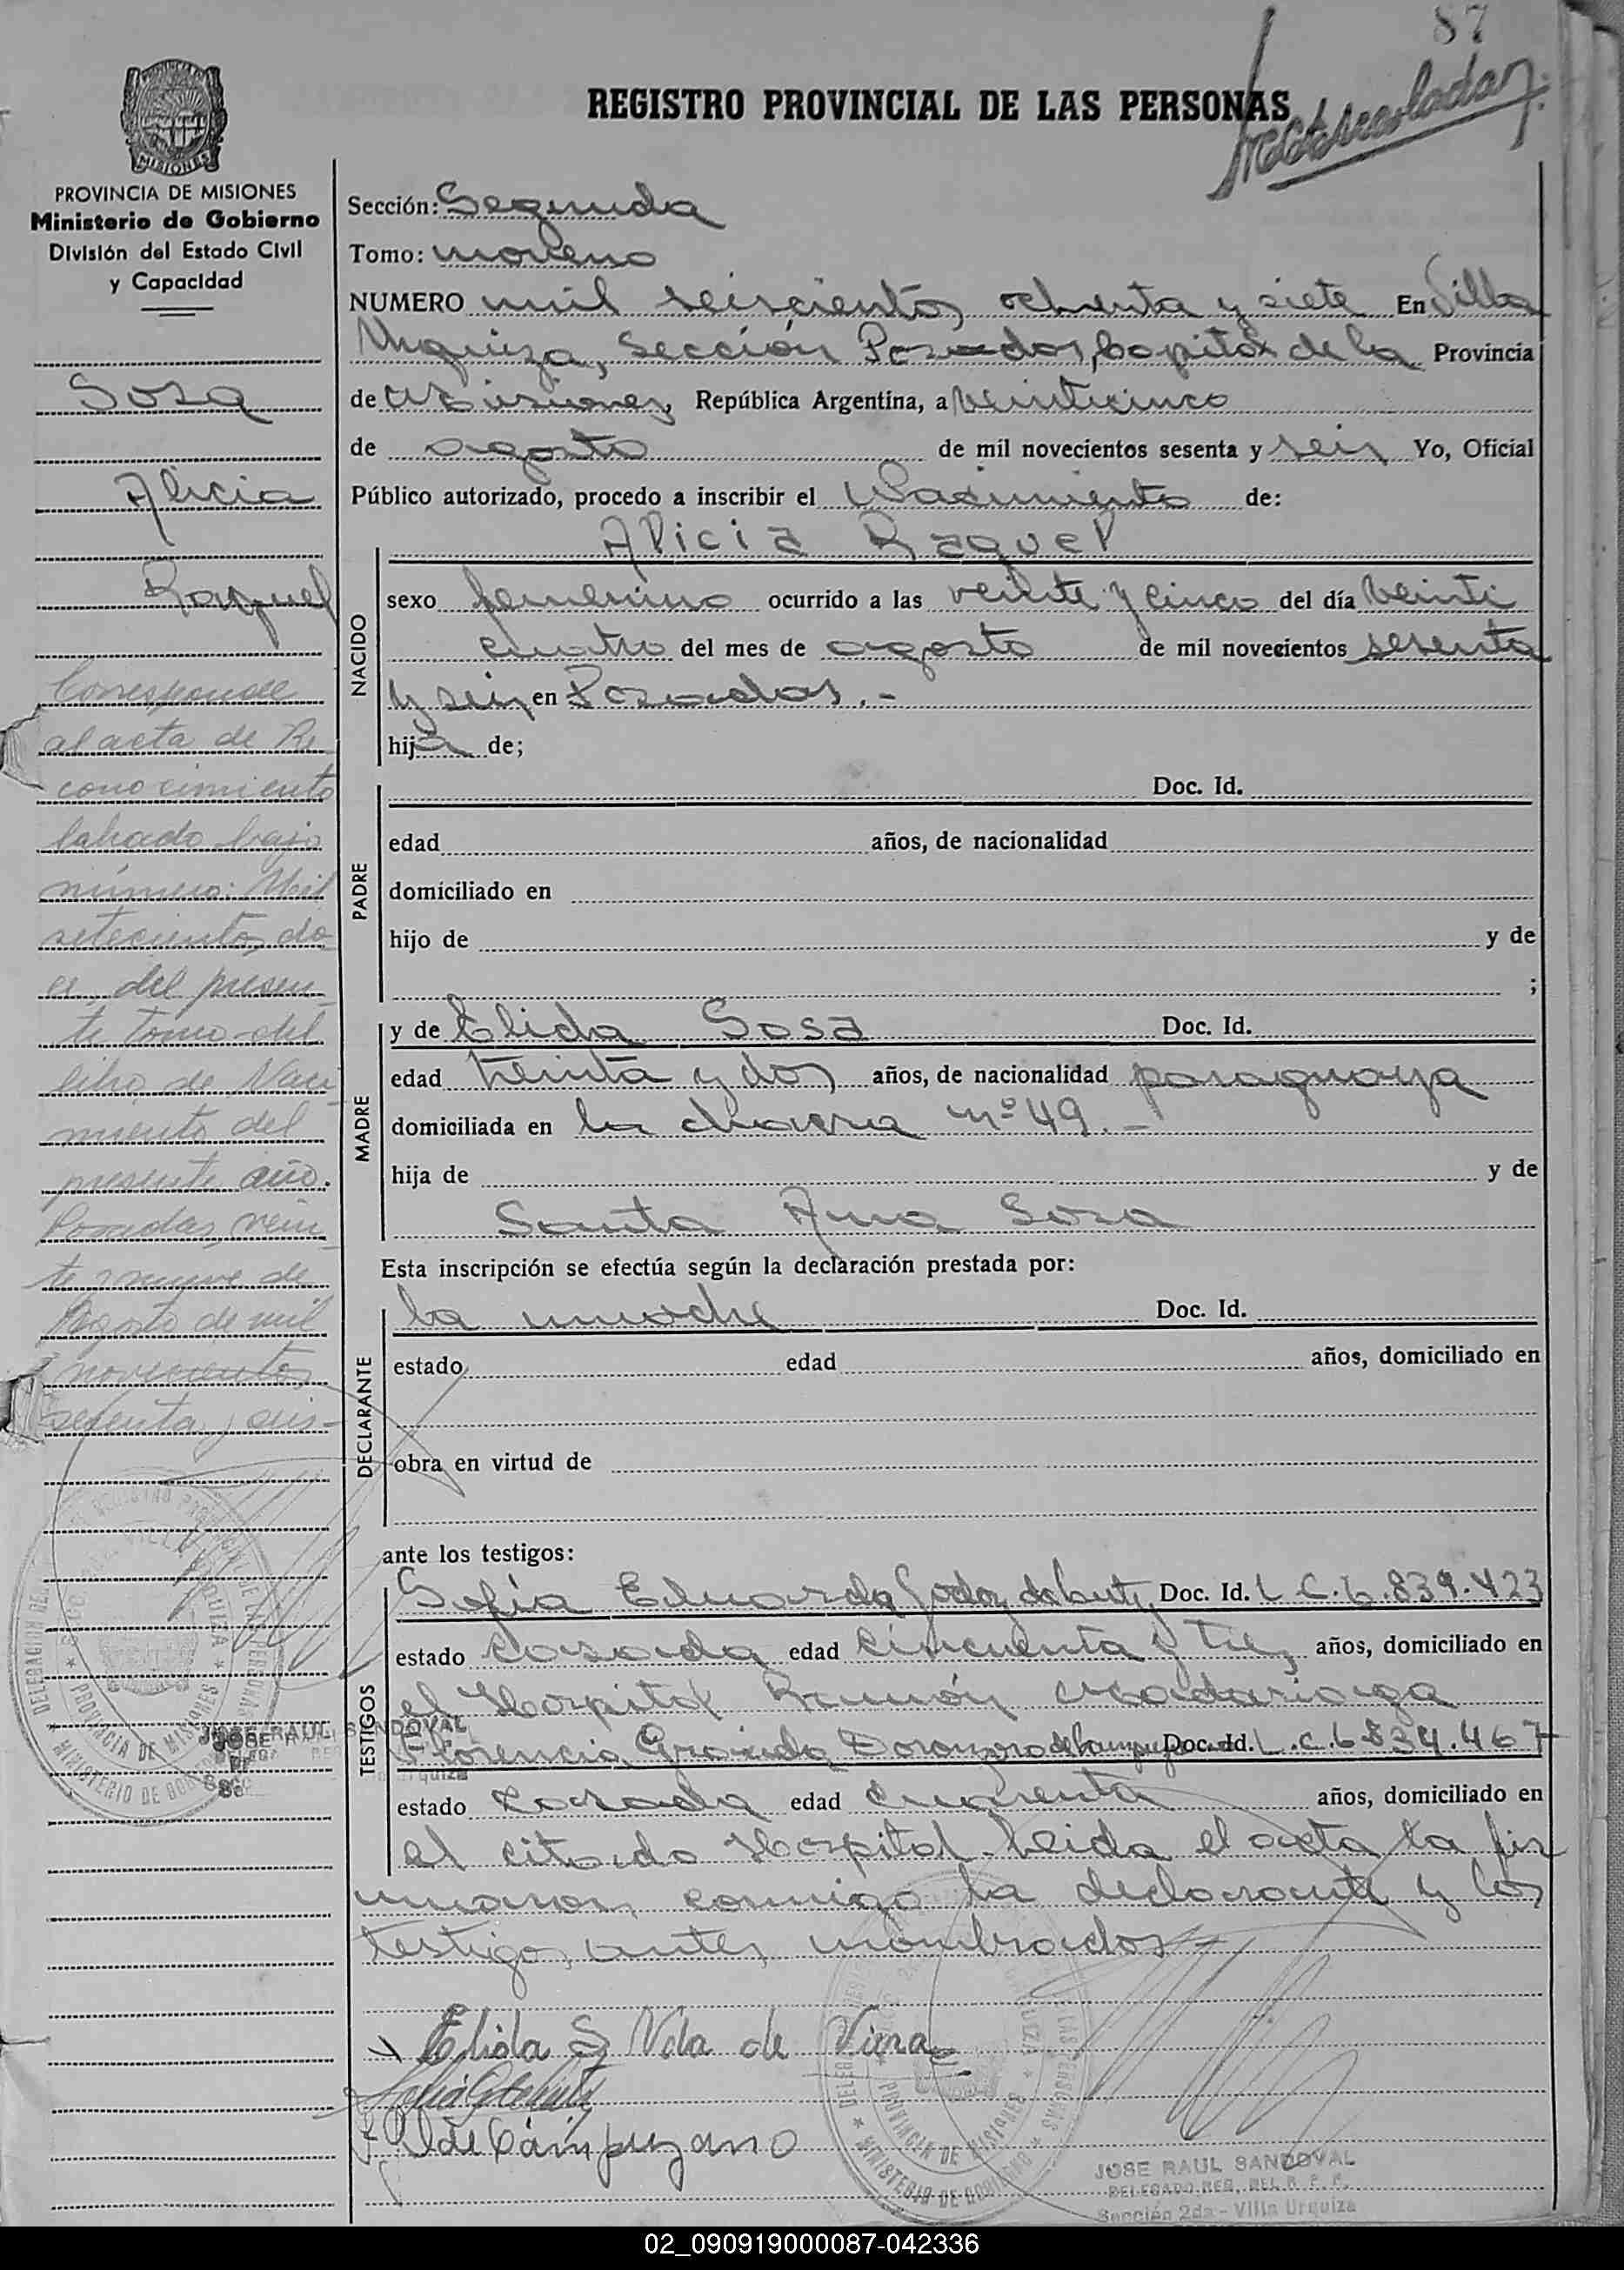 87
REGISTRO PROVINCIAL DE LAS PERSONAS
MISIONES
PROVINCIA DE MISIONES
Ministerio de Gobierno
División del Estado Civil
y Capacidad
Sosa
Alicia
Raquel
Corresponde
al acta de Re
conocimiento
labrado bajo
número: Mil
setecientos do
ce del presen-
te tomo del
libro de Naci
miento del
presente año.
Posadas, vein
te y nueve de
Agosto de mil
novecientos
sesenta y seis-
Sección: Segunda
Tomo: moreno
NUMERO mil seiscientos ochenta y siete En Villa
Urquiza, Sección Posadas, Capital de la Provincia
de Misiones, República Argentina, a veinticinco
de agosto de mil novecientos sesenta y seis Yo, Oficial
Público autorizado, procedo a inscribir el Nacimiento de:
NACIDO
Alicia Raquel
sexo femenino ocurrido a las veinte y cinco del día veinti
cuatro del mes de agosto de mil novecientos sesenta
y seis en Posadas.-
hija de;
PADRE
Doc. Id.
edad años, de nacionalidad
domiciliado en
hijo de y de
;
MADRE
y de Elida Sosa Doc. Id.
edad treinta y dos años, de nacionalidad paraguaya
domiciliada en la chacra nº 49.-
hija de y de
Santa Ana Sosa
Esta inscripción se efectúa según la declaración prestada por:
DECLARANTE
la madre Doc. Id.
estado edad años, domiciliado en
obra en virtud de
ante los testigos:
TESTIGOS
Sofía Eduarda Godoy de Doc. Id. L.C. 6.839.423
estado casada edad cincuenta y tres años, domiciliado en
el Hospital Ramón Madariaga
Florencia Doc. Id. L.C. 6.834.467
estado casada edad cuarenta años, domiciliado en
el citado Hospital. Leida el acta la fir
maron conmigo la declarante y los
testigos antes nombrados
Elida S Vda de
de Campuzano
DELEGACION DEL REGISTRO PROVINCIAL DE LAS PERSONAS
VILLA URQUIZA
PROVINCIA DE MISIONES
MINISTERIO DE GOBIERNO
JOSE RAUL SANDOVAL
JOSE RAUL SANDOVAL
DELEGADO REG. DEL R. P. P.
Sección 2da - Villa Urquiza
02_090919000087-042336